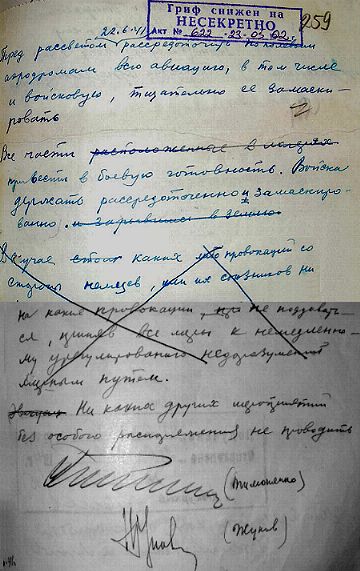 Гриф снижен на
НЕСЕКРЕТНО
Акт № 622 23-05-02 г.
259
22.6.41
Перед рассветом рассредоточить по полевым
аэродромам всю авиацию, в том числе
и войсковую, тщательно ее замаски-
ровать
Все части расположенные в лагерях
привести в боевую готовность. Войска
держать рассредоточенно и замаскиро-
ванно и зарывшись в землю
В случае каких либо провокаций со
стороны немцев, или их союзников ни
на какие провокации, не поддавать-
ся, приняв все меры к немедленно-
му урегулированию недоразумений
мирным путем.
Никаких других мероприятий
без особого распоряжения не проводить
(Тимошенко)
(Жуков)